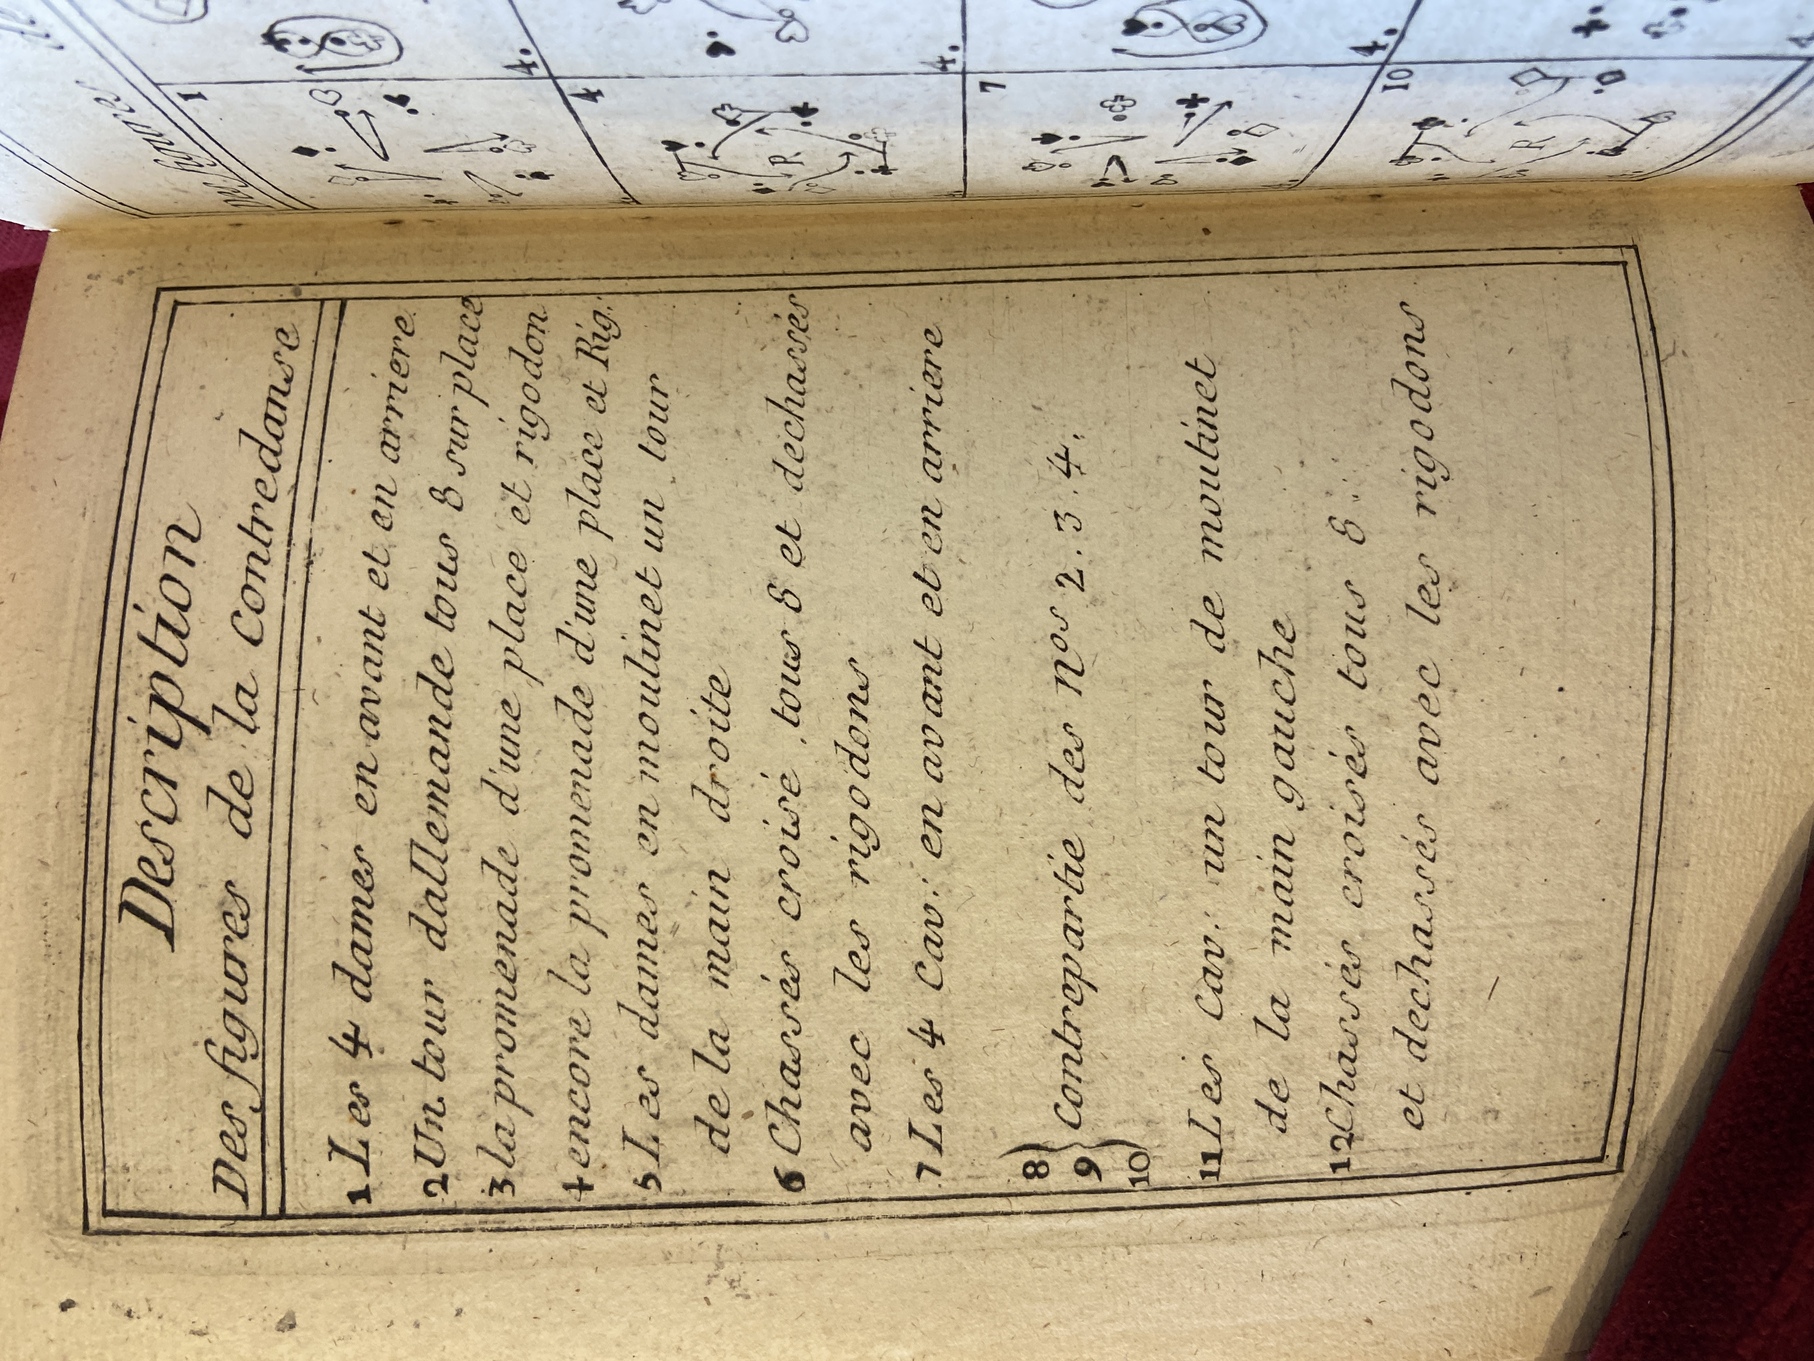 Description
Des figures de la contredanse
1 Les 4 dames en avant et en arriere
2 Un tour dallemande tous 8 sur place
3 la promenade d'une place et rigodon
4 encore la promenade d'une place et Rig:
5 Les dames en moulinet un tour
de la main droite
6 Chassés croisé tous 8 et dechassés
avec les rigodons
7 Les 4 Cav: en avant et en arriere
8)
9} Contrepartie des Nos 2. 3. 4.
10)
11 Les Cav: un tour de moulinet
de la main gauche
12 Chassés croisés tous 8.
et dechassés avec les rigodons
figures
1
4.
4
4.
7
4.
10
R
R